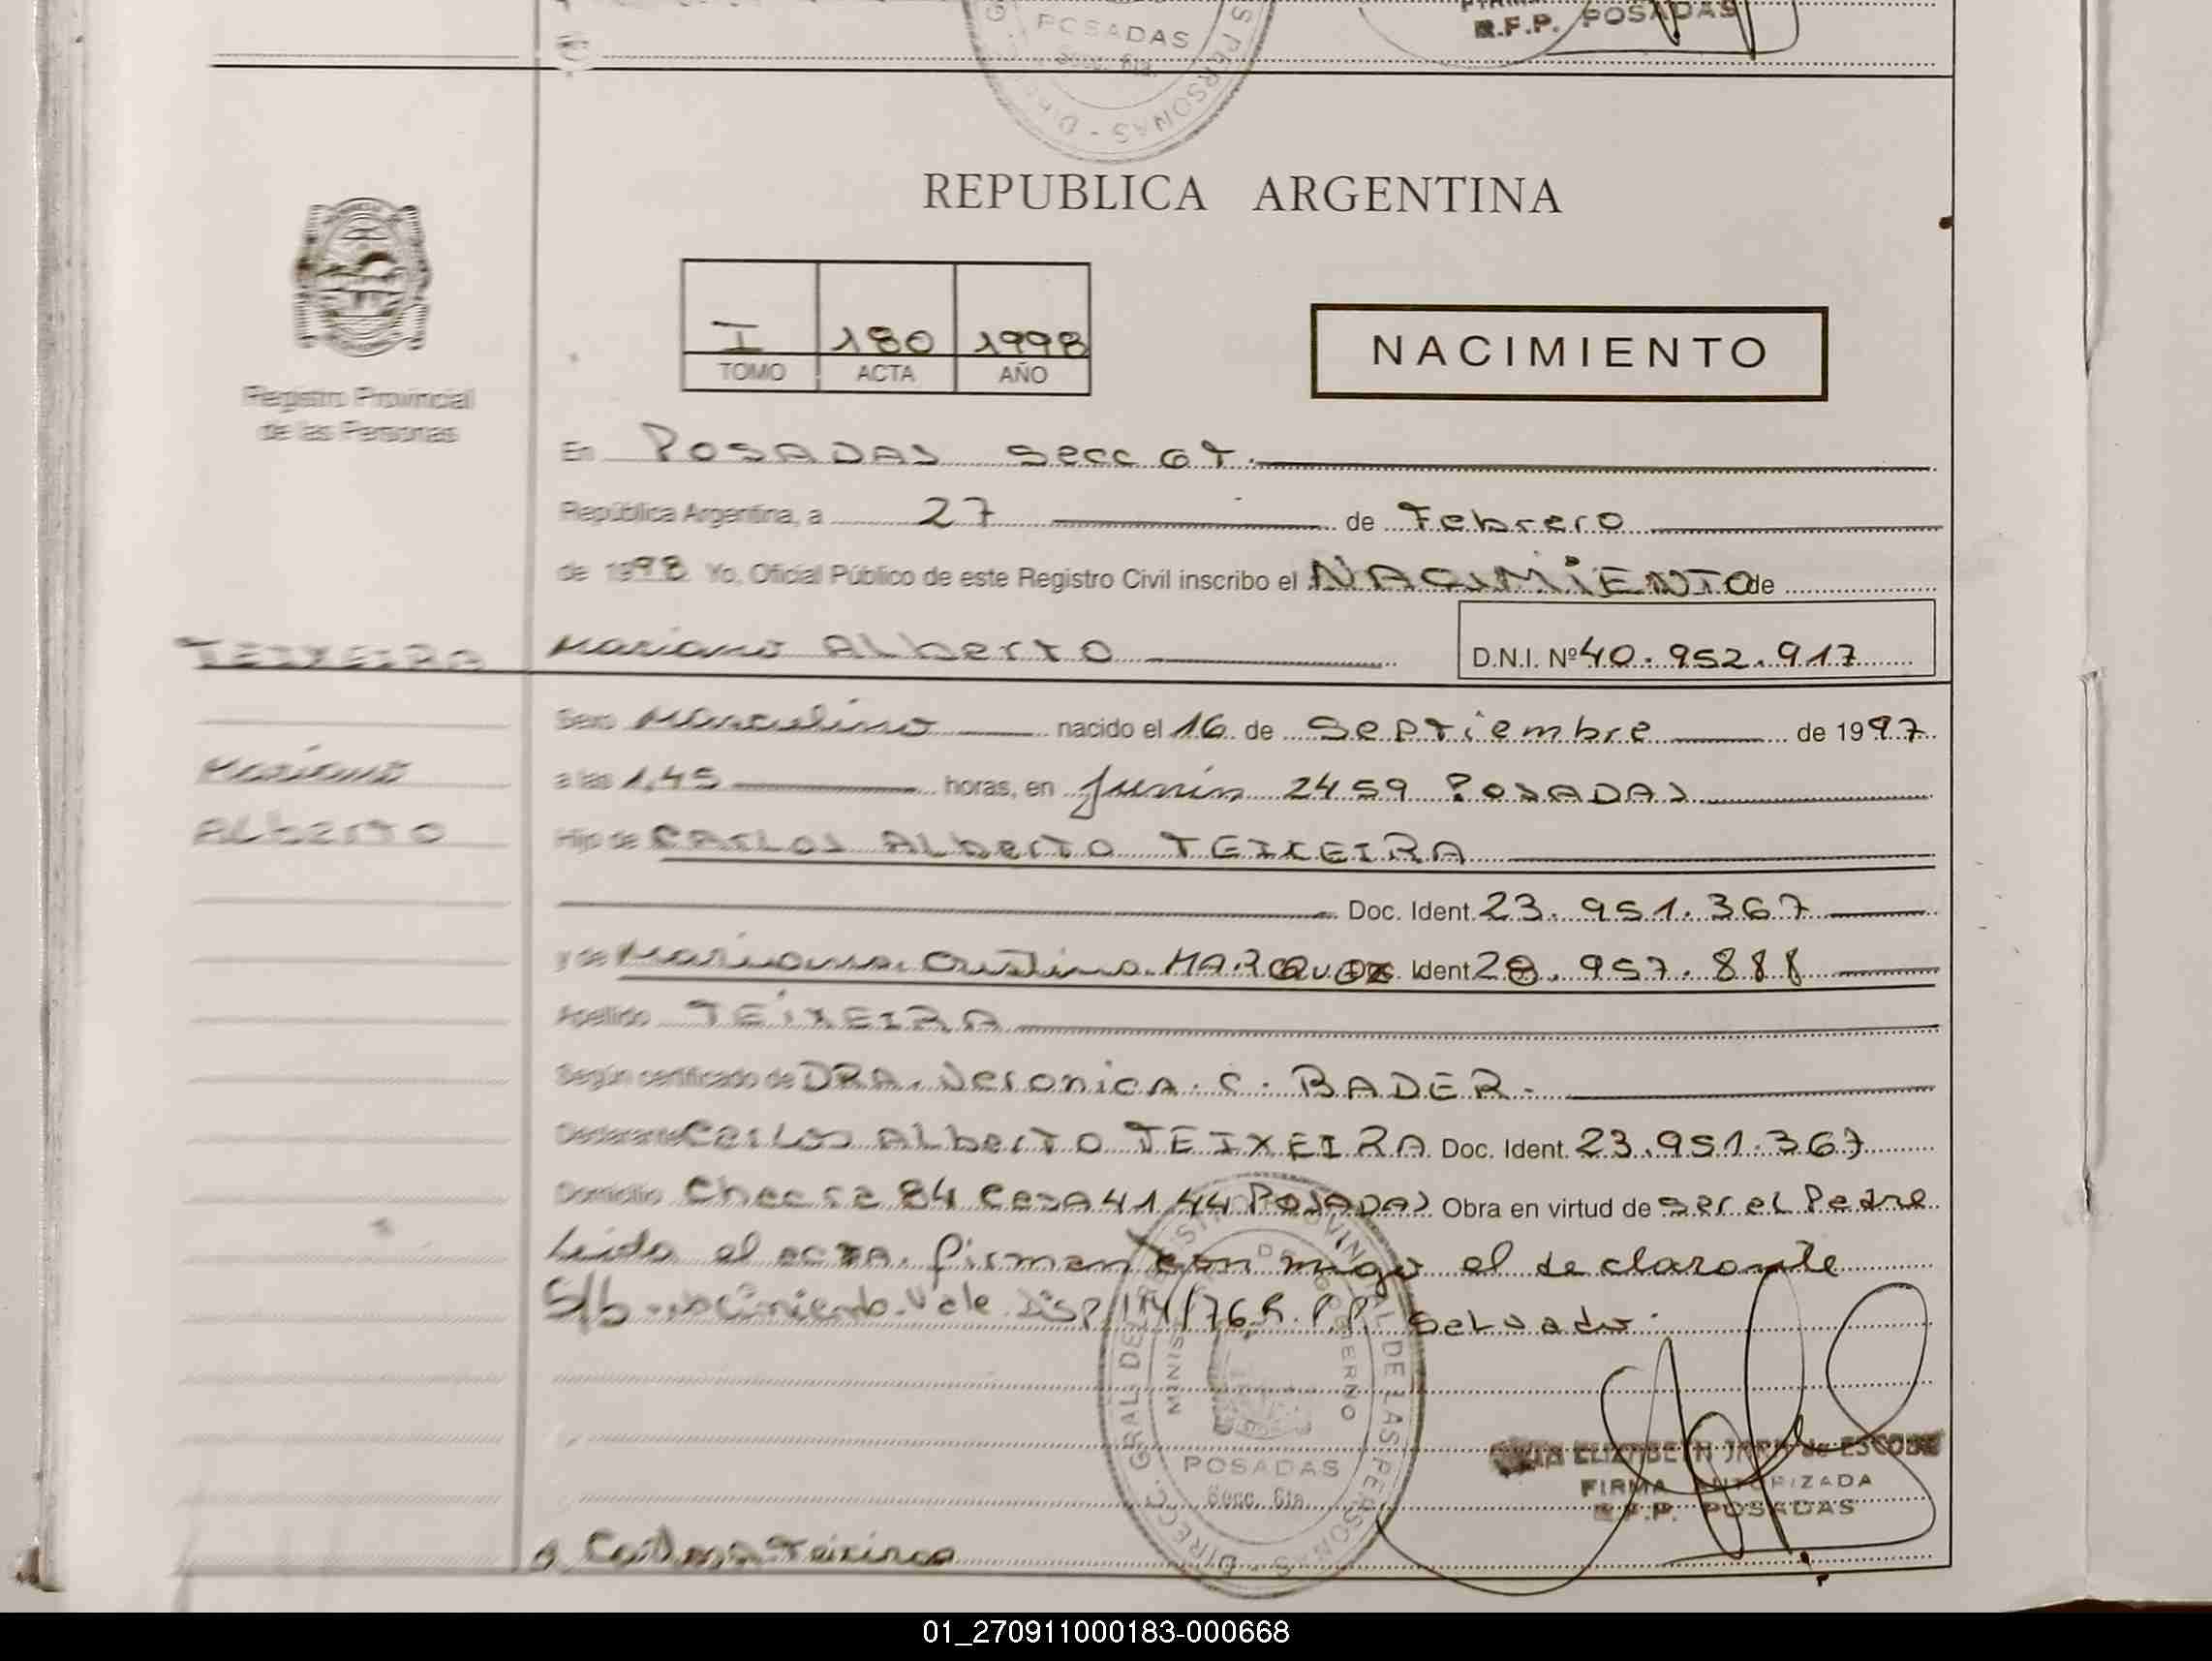 POSADAS
Secc. 6ta.
S PERSONAS - DIR
R.P.P. POSADAS
REPUBLICA ARGENTINA
I 180 1998
TOMO ACTA AÑO
NACIMIENTO
Registro Provincial
de las Personas
En POSADAS Secc 6т.
República Argentina, a 27 de Febrero
de 1998 Yo, Oficial Público de este Registro Civil inscribo el NACIMIENTO de
TEIXEIRA Mariano Alberto D.N.I. Nº 40.952.917
Sexo Masculino nacido el 16 de Septiembre de 1997
Mariano
a las 1,45 horas, en Junín 2459 POSADAS
Alberto
Hijo de CARLOS Alberto TEIXEIRA
Doc. Ident. 23.951.367
y de Mariana Cristina MARQUEZ Ident 28.957.888
Apellido TEIXEIRA
Según certificado de DRA. Veronica C. BADER.-
Declarante Carlos Alberto TEIXEIRA Doc. Ident. 23.951.367
Domicilio Chacra 84 CASA 4144 POSADAS Obra en virtud de ser el Padre
Leida el acta. firman con migo el declarante
S/b nacimiento. Vale. Disp. 114/76. R.P.P. Salvado.
DIRECC. GRAL. DEL REGISTRO PROVINCIAL DE LAS PERSONAS
MINIS DE GOBIERNO
POSADAS
Secc. 6ta.
ELIZABETH de ESCOBAR
FIRMA AUTORIZADA
R.P.P. POSADAS
01_270911000183-000668